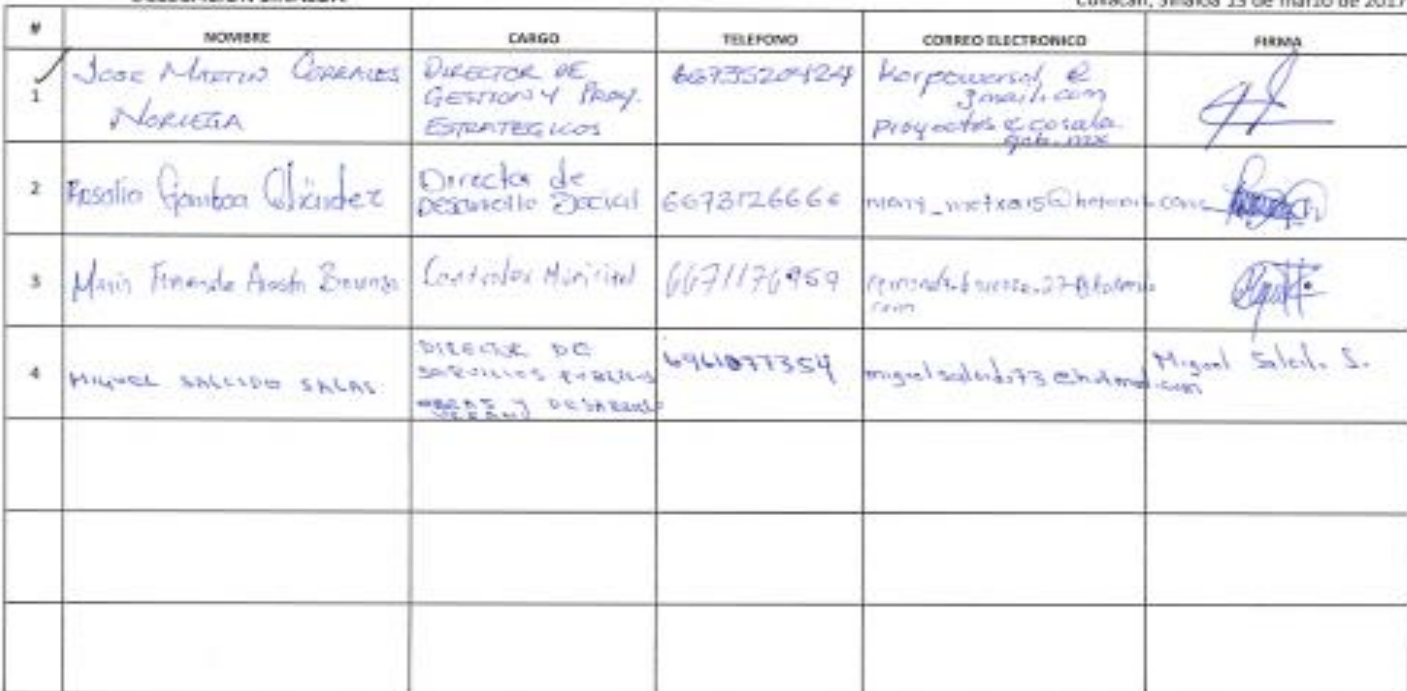 Culiacán, Sinaloa 13 de marzo de 2017
# NOMBRE CARGO TELEFONO CORREO ELECTRONICO FIRMA
1 JOSE MARTIN CORRALES NORIEGA
DIRECTOR DE
GESTION Y PROY.
ESTRATEGICOS
Korpowersol @
gmail.com
proyectos@cosala.
gob.mx
2 Rosalio Gamboa
Director de
Desarrollo Social
6673126666
3 Acosta
Contralor Municipal
6671176959
4 MIGUEL SALCIDO SALAS
DIRECTOR DE
SERVICIOS PUBLICOS
OBRAS Y DESARROLLO
URBANO
6961077354
miguelsalcido73@hotmail.com
Miguel Salcido S.